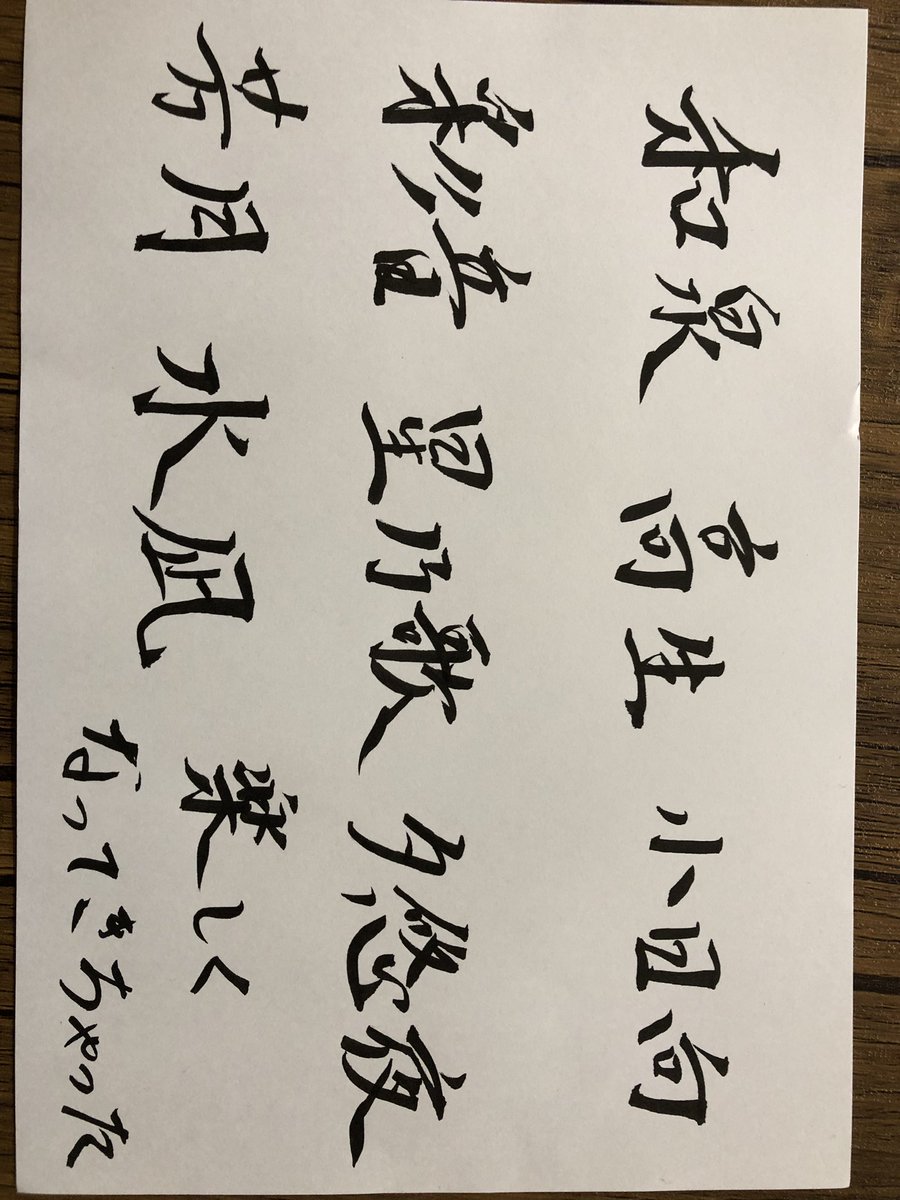 和泉 高生 小日向
彩音 星乃歌 夕悠夜
芳月 水凪 楽しく
なってきちゃった